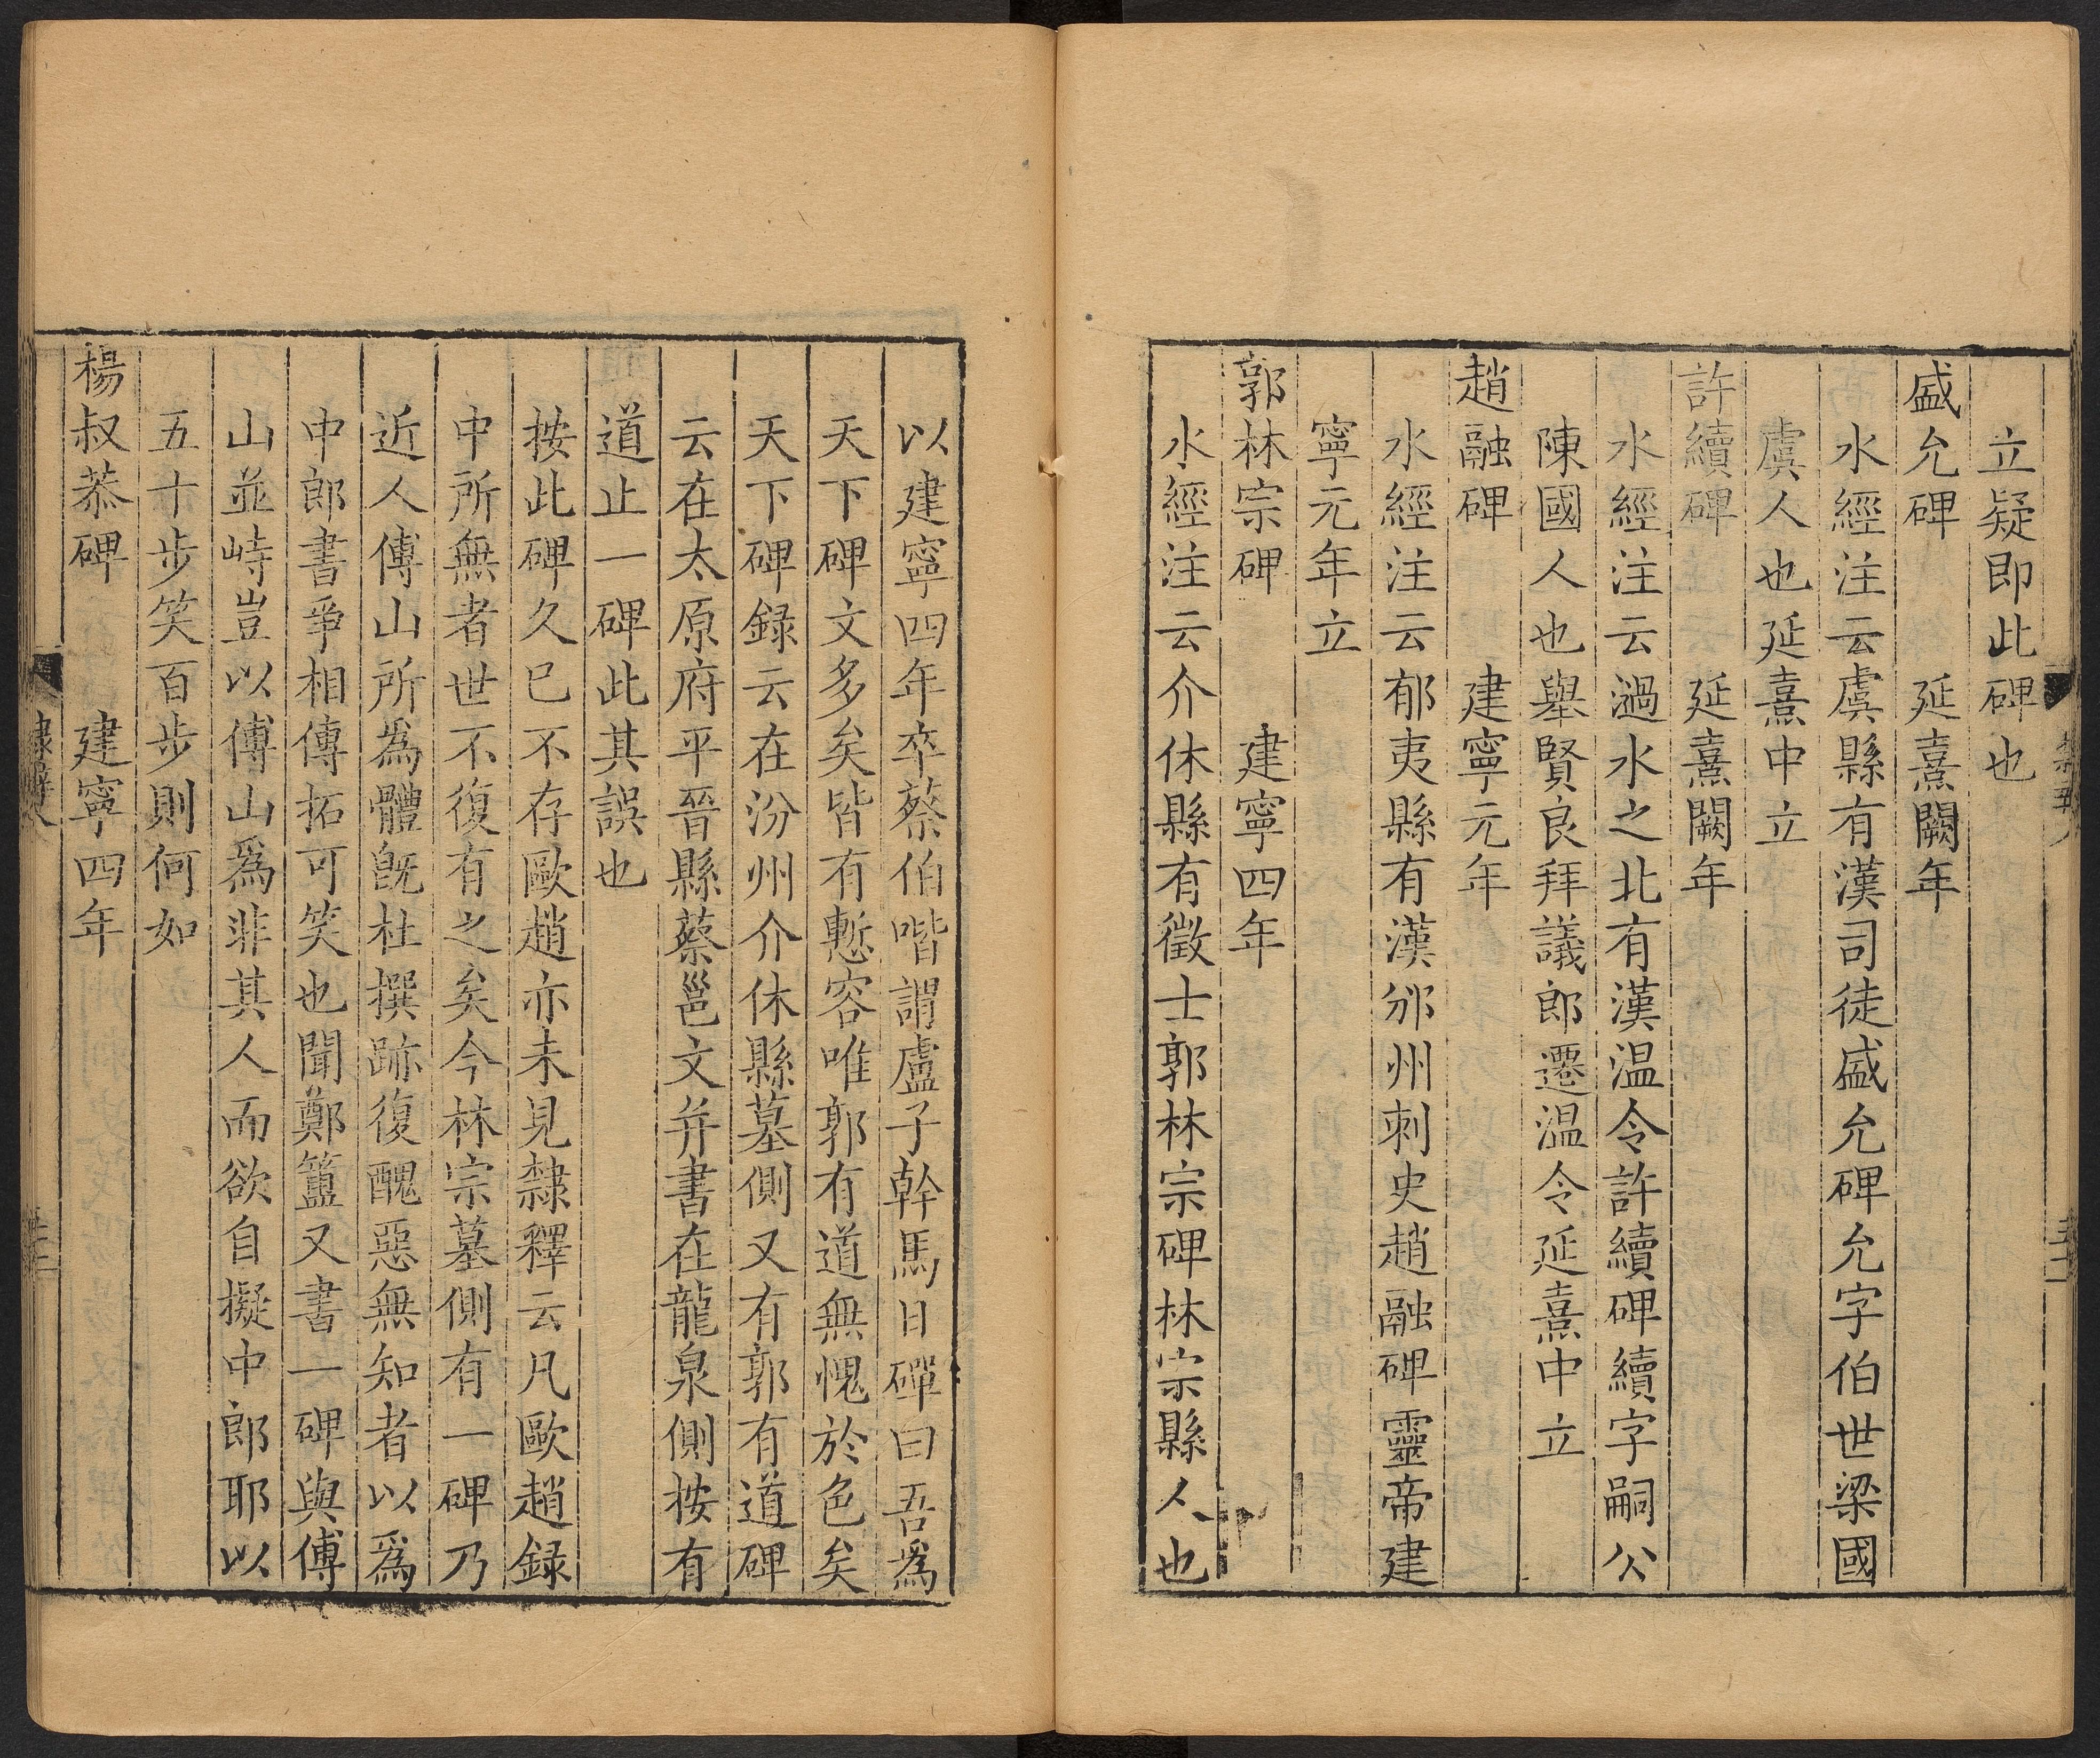 立疑即此碑也
盛允碑　延熹闕年
水經注云虞縣有漢司徒盛允碑允字伯世梁國
虞人也延熹中立
許續碑　延熹闕年
水經注云濄水之北有漢温令許續碑續字嗣公
陳國人也舉賢良拜議郎遷温令延熹中立
趙融碑　建寧元年
水經注云郁夷縣有漢邠州刺史趙融碑靈帝建
寧元年立
郭林宗碑　建寧四年
水經注云介休縣有徵士郭林宗碑林宗縣人也
以建寧四年卒蔡伯喈謂盧子幹馬日磾曰吾爲
天下碑文多矣皆有慙容唯郭有道無愧於色矣
天下碑録云在汾州介休縣墓側又有郭有道碑
云在太原府平晉縣蔡邕文并書在龍泉側按有
道止一碑此其誤也
按此碑久已不存歐趙亦未見隸釋云凡歐趙録
中所無者世不復有之矣今林宗墓側有一碑乃
近人傅山所爲體旣杜撰跡復醜惡無知者以爲
中郎書爭相傳拓可笑也聞鄭簠又書一碑與傅
山並峙豈以傅山爲非其人而欲自擬中郎耶以
五十步笑百步則何如
楊叔恭碑　建寧四年
隸辨八